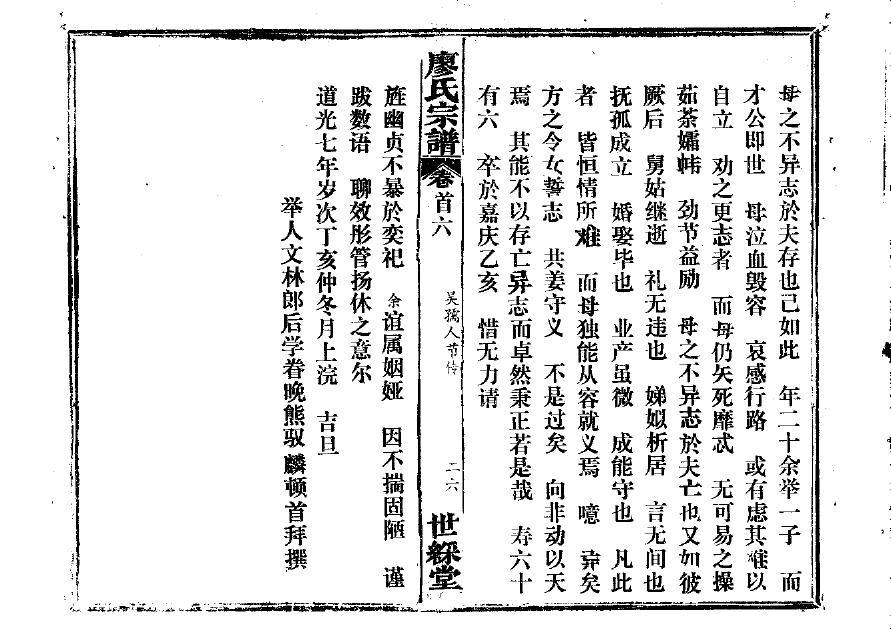 母之不异志於夫存也已如此 年二十余举一子 而
才公即世 母泣血毁容 哀感行路 或有虑其难以
自立 劝之更志者 而母仍矢死靡忒 无可易之操
茹荼孀帏 劲节益励 母之不异志於夫亡也又如彼
厥后 舅姑继逝 礼无违也 娣姒析居 言无间也
抚孤成立 婚娶毕也 业产虽微 成能守也 凡此
者 皆恒情所难 而母独能从容就义焉 噫 弈矣
方之令女誓志 共姜守义 不是过矣 向非动以天
焉 其能不以存亡异志而卓然秉正若是哉 寿六十
有六 卒於嘉庆乙亥 惜无力请
廖氏宗譜 卷首六 吴孺人节传 二六 世綵堂
旌幽贞不暴於奕祀 余谊属姻娅 因不揣固陋 谨
跋数语 聊效彤管扬休之意尔
道光七年岁次丁亥仲冬月上浣 吉旦
举人文林郎后学眷晚熊驭麟顿首拜撰